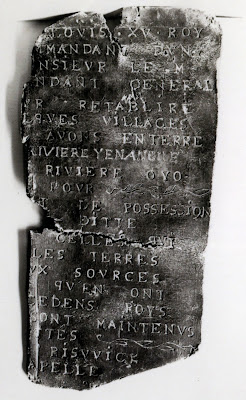 LOUIS XV ROY
MANDANT D'VN
NSIEVR LE M
NDANT GENERAL
R RETABLIRE
LQVES VILLAGES
AVONS ENTERRE
RIVIERE YENANGVE
RIVIERE OYO
POVR
T DE POSSESSION
DITTE
CELLE QVI
LES TERRES
VX SOURCES
QVEN ONT
EDENS ROYS
SONT MAINTENVS
TES
RISVVICK
APELLE